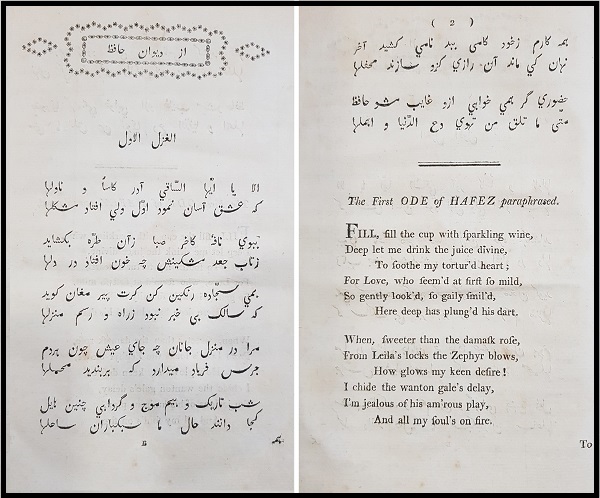 از دیوان حافظ
الغزل الاول
الا یا ایّها السّاقی آدر کاسًا و ناولها
که عشق آسان نمود اوّل ولی افتاد مشکلها
ببوی نافهٔ کاخر صبا زآن طرّه بکشاید
زتاب جعد مشکینش چه خون افتاد در دلها
بمی سجّاده رنکین کن کرت پیر مغان کوید
که سالک بی خبر نبود زراه و رسم منزلها
مرا در منزل جانان چه جای عیش چون هردم
جرس فریاد میدارد که بربندید محملها
شب تاریک و بیم موج و گردابی چنین هایل
کجا دانند حال ما سبکباران ساحلها
B همه
( 2 )
همه کارم زخود کامی ببد نامی کشید آخر
نهان کی ماند آن رازی کزو سازند محفلها
حضوری گر همی خواهی ازو غایب مشو حافظ
متّی ما تلق من تهوی دع الدّنیا و اهملها
The First ODE of HAFEZ paraphrased.
FILL, fill the cup with ſparkling wine,
Deep let me drink the juice divine,
To ſoothe my tortur'd heart;
For Love, who ſeem'd at firſt ſo mild,
So gently look'd, ſo gaily ſmil'd,
Here deep has plung'd his dart.
When, ſweeter than the damaſk roſe,
From Leila's locks the Zephyr blows,
How glows my keen deſire!
I chide the wanton gale's delay,
I'm jealous of his am'rous play,
And all my ſoul's on fire.
To